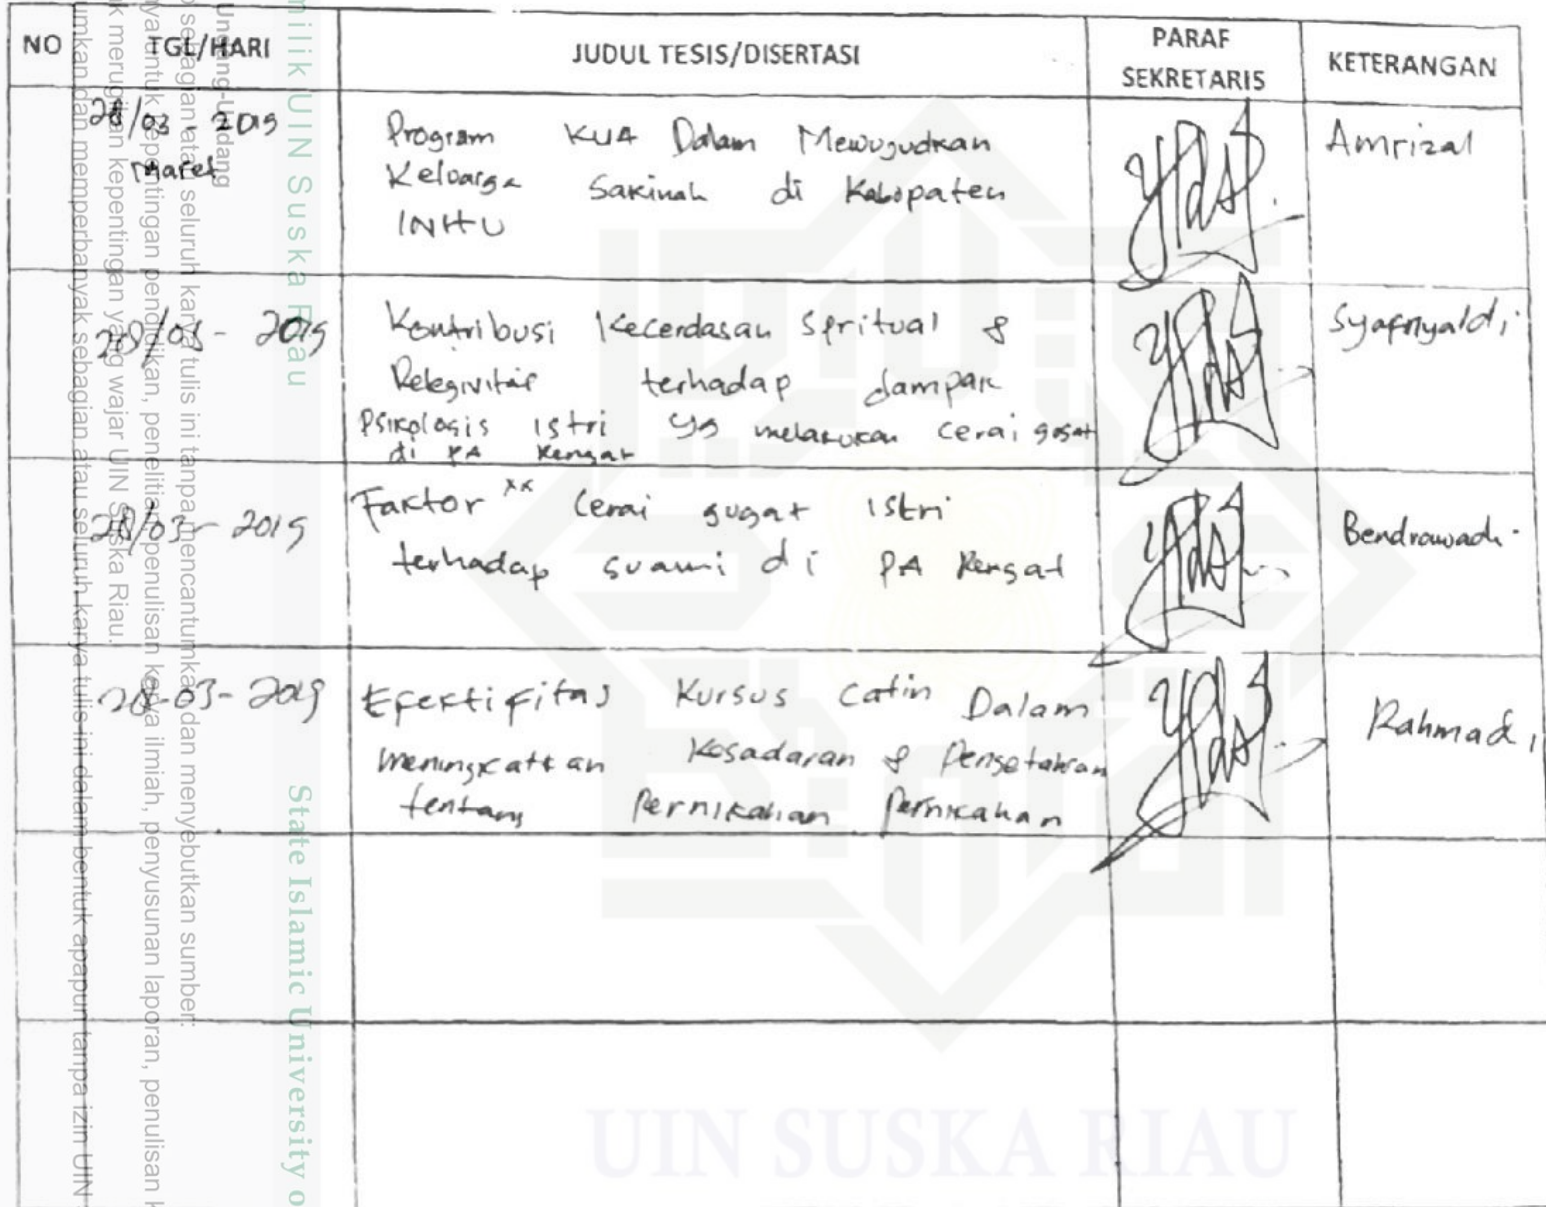 NO TGL/HARI JUDUL TESIS/DISERTASI PARAF SEKRETARIS KETERANGAN
28/03 - 2019
Maret
Program KUA Dalam Mewujudkan
Keluarga Sakinah di Kabupaten
INHU
Amrizal
28/03 - 2019
Kontribusi Kecerdasan Spritual &
Relegivitas terhadap dampak
Psikologis istri yg melakukan cerai gugat
di PA Rengat
Syafriyaldi
28/03 - 2019
Faktor xx Cerai gugat istri
terhadap suami di PA Rengat
Bendrawadi
28-03-2019
Efektifitas Kursus Catin Dalam
meningkatkan Kesadaran & Pengetahuan
tentang Pernikahan Pernikahan
Rahmadi
milik UIN Suska Riau
State Islamic University o
Undang-Undang
sebagian atau seluruh karya tulis ini tanpa mencantumkan dan menyebutkan sumber:
nya untuk kepentingan pendidikan, penelitian, penulisan karya ilmiah, penyusunan laporan, penulisan k
k merugikan kepentingan yang wajar UIN Suska Riau.
umkan dan memperbanyak sebagian atau seluruh karya tulis ini dalam bentuk apapun tanpa izin UIN
UIN SUSKA RIAU